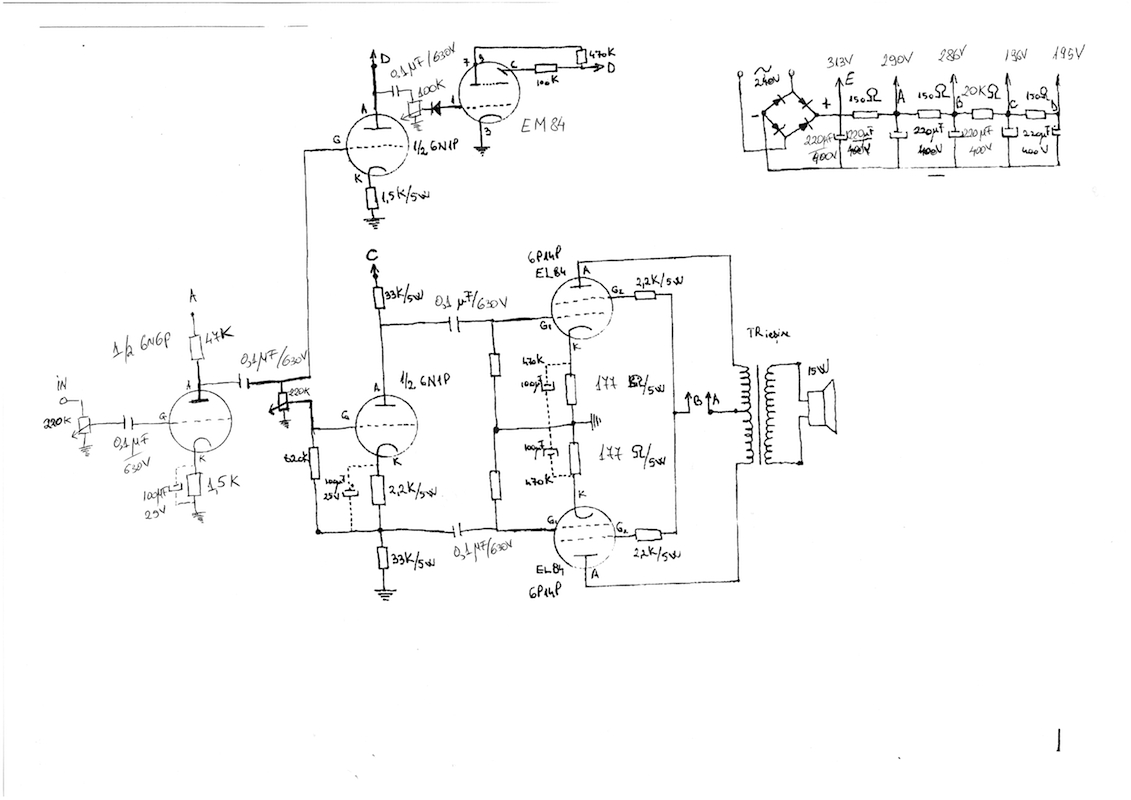 D
0,1µF/630V
100K
A
G
K
1/2 6N1P
1,5K/5W
7
9
C
1
3
100K
470K
D
EM84
~
240V
-
+
313V
290V
286V
136V
195V
E
A
B
C
D
150Ω
150Ω
20KΩ
150Ω
220µF
400V
220µF
400V
220µF
400V
220µF
400V
220µF
400V
iN
220K
0,1µF
630V
A
47K
1/2 6N6P
A
G
K
100µF
25V
1,5K
0,1µF/630V
220K
820K
C
33K/5W
1/2 6N1P
A
G
K
100µF
25V
2,2K/5W
33K/5W
0,1µF/630V
0,1µF/630V
6P14P
EL84
A
G2
G1
K
2,2K/5W
470K
100µF
177 Ω/5W
100µF
177 Ω/5W
470K
K
G1
G2
2,2K/5W
A
EL84
6P14P
B
A
TRiesire
15W